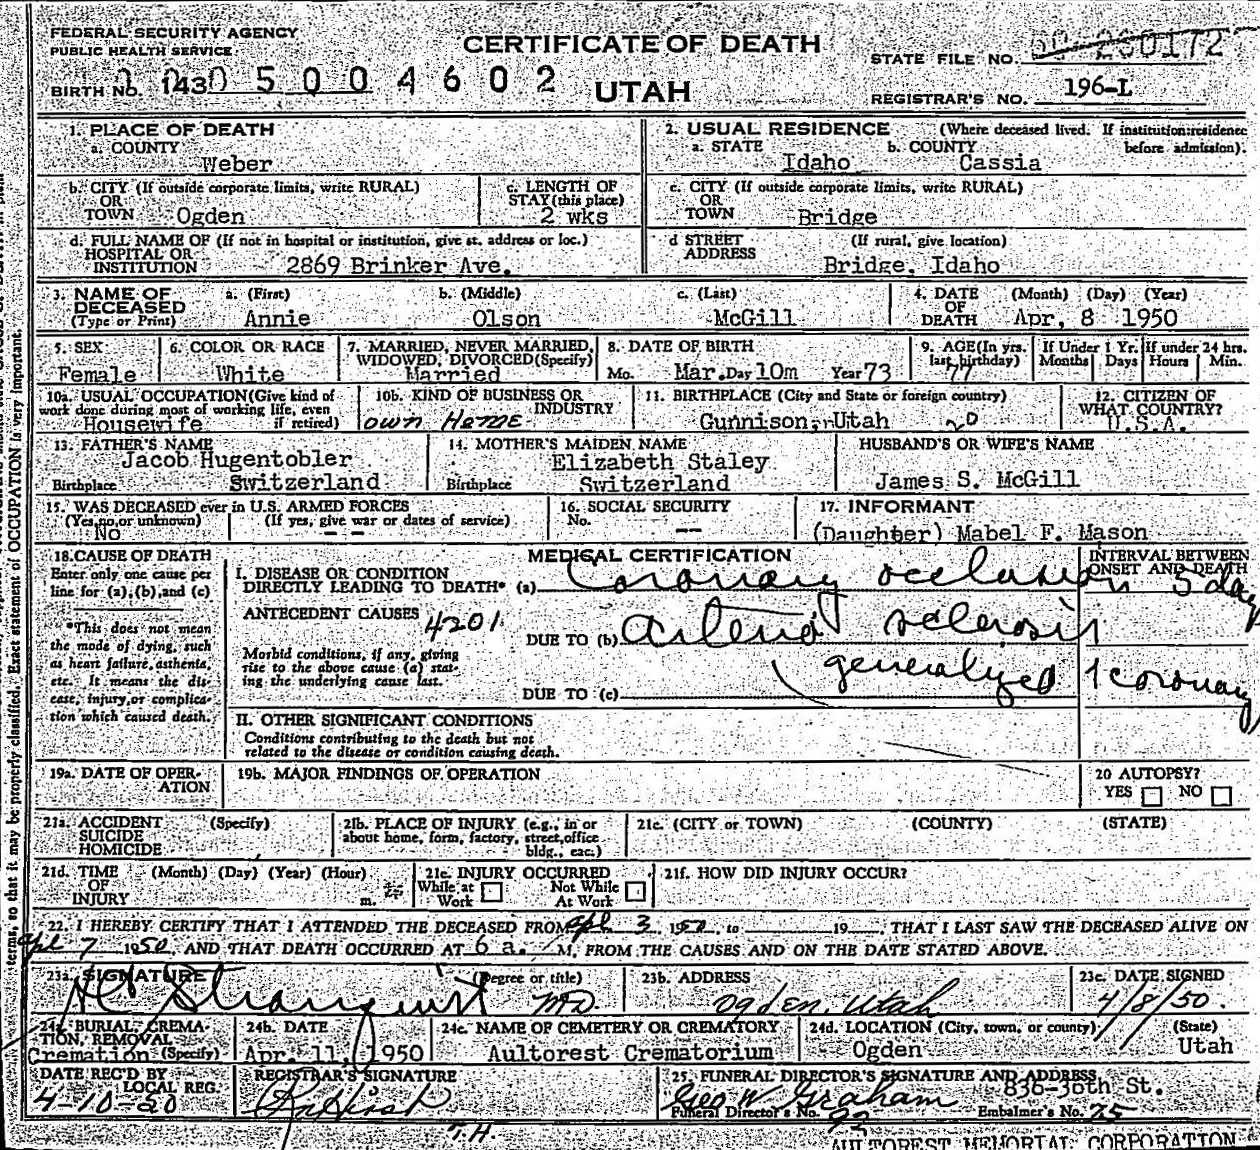 FEDERAL SECURITY AGENCY
PUBLIC HEALTH SERVICE
BIRTH No. 1430 5 0 0 4 6 0 2
CERTIFICATE OF DEATH
UTAH
STATE FILE NO.
REGISTRAR'S NO. 196-L
1. PLACE OF DEATH
a. COUNTY
Weber
2. USUAL RESIDENCE (Where deceased lived. If institution: residence before admission).
a. STATE Idaho b. COUNTY Cassia
b. CITY (If outside corporate limits, write RURAL)
OR
TOWN Ogden
c. LENGTH OF
STAY (this place)
2 wks
c. CITY (If outside corporate limits, write RURAL)
OR
TOWN Bridge
d. FULL NAME OF (If not in hospital or institution, give st. address or loc.)
HOSPITAL OR
INSTITUTION 2869 Brinker Ave.
d STREET (If rural, give location)
ADDRESS
Bridge, Idaho
3. NAME OF DECEASED
(Type or Print)
a. (First)
Annie
b. (Middle)
Olson
c. (Last)
McGill
4. DATE (Month) (Day) (Year)
OF
DEATH Apr, 8 1950
5. SEX
Female
6. COLOR OR RACE
White
7. MARRIED, NEVER MARRIED,
WIDOWED, DIVORCED (Specify)
Married
8. DATE OF BIRTH
Mo. Mar. Day 10m Year 73
9. AGE (In yrs.
last birthday)
77
If Under 1 Yr.
Months Days
If under 24 hrs.
Hours Min.
10a. USUAL OCCUPATION (Give kind of
work done during most of working life, even
if retired)
Housewife
10b. KIND OF BUSINESS OR
INDUSTRY
own Home
11. BIRTHPLACE (City and State or foreign country)
Gunnison, Utah 20
12. CITIZEN OF
WHAT COUNTRY?
U.S.A.
13. FATHER'S NAME
Jacob Hugentobler
Birthplace Switzerland
14. MOTHER'S MAIDEN NAME
Elizabeth Staley
Birthplace Switzerland
HUSBAND'S OR WIFE'S NAME
James S. McGill
15. WAS DECEASED ever in U.S. ARMED FORCES
(Yes, no, or unknown) (If yes, give war or dates of service)
No - -
16. SOCIAL SECURITY
No. --
17. INFORMANT
(Daughter) Mabel F. Mason
18. CAUSE OF DEATH
Enter only one cause per
line for (a), (b), and (c)
*This does not mean
the mode of dying, such
as heart failure, asthenia,
etc. It means the dis-
ease, injury, or complica-
tion which caused death.
MEDICAL CERTIFICATION
INTERVAL BETWEEN
ONSET AND DEATH
I. DISEASE OR CONDITION
DIRECTLY LEADING TO DEATH* (a) Coronary occlusion 5 day
ANTECEDENT CAUSES 4201
DUE TO (b) arterio sclerosis
Morbid conditions, if any, giving
rise to the above cause (a) stat-
ing the underlying cause last.
generalized & coronary
DUE TO (c)
II. OTHER SIGNIFICANT CONDITIONS
Conditions contributing to the death but not
related to the disease or condition causing death.
19a. DATE OF OPER-
ATION
19b. MAJOR FINDINGS OF OPERATION
20 AUTOPSY?
YES NO
21a. ACCIDENT (Specify)
SUICIDE
HOMICIDE
21b. PLACE OF INJURY (e.g., in or
about home, form, factory, street, office
bldg., exc.)
21c. (CITY or TOWN) (COUNTY) (STATE)
21d. TIME (Month) (Day) (Year) (Hour)
OF
INJURY m.
21e. INJURY OCCURRED
While at Work Not While At Work
21f. HOW DID INJURY OCCUR?
22. I HEREBY CERTIFY THAT I ATTENDED THE DECEASED FROM Apl. 3 1950, to 19, THAT I LAST SAW THE DECEASED ALIVE ON
Apl 7 1950 AND THAT DEATH OCCURRED AT 6 a. M, FROM THE CAUSES AND ON THE DATE STATED ABOVE.
23a. SIGNATURE (Degree or title)
Stranquist MD
23b. ADDRESS
Ogden, Utah
23c. DATE SIGNED
4/8/50
24a. BURIAL, CREMA-
TION, REMOVAL
Cremation (Specify)
24b. DATE
Apr. 11, 1950
24c. NAME OF CEMETERY OR CREMATORY
Aultorest Crematorium
24d. LOCATION (City, town, or county) (State)
Ogden Utah
DATE REC'D BY
LOCAL REG.
4-10-50
REGISTRAR'S SIGNATURE
25. FUNERAL DIRECTOR'S SIGNATURE AND ADDRESS
836-36th St.
Geo W. Graham
Funeral Director's No. 92 Embalmer's No. 75
AULTOREST MEMORIAL CORPORATION
terms, so that it may be properly classified. Exact statement of OCCUPATION is very important.